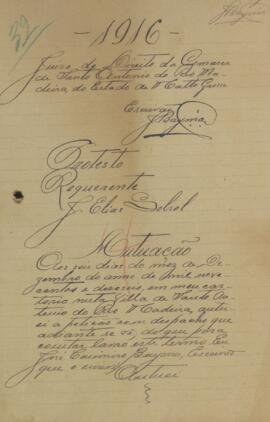 - 1916 -
Juizo de Direito da Comarca
de Santo Antonio do Rio Ma-
deira, do Estado de Matto Grosso
Escrivão
Protesto
Requerente
J. Elias
Autuação
Aos seis dias do mez de De-
zembro do anno de mil nove-
centos e deseseis, em meu car-
torio nesta Villa de Santo An-
tonio do Rio Madeira, autu-
ei a petição com despacho que
adiante se vê, do que para
constar lavro este termo. Eu
José escrivão
que o escrevi